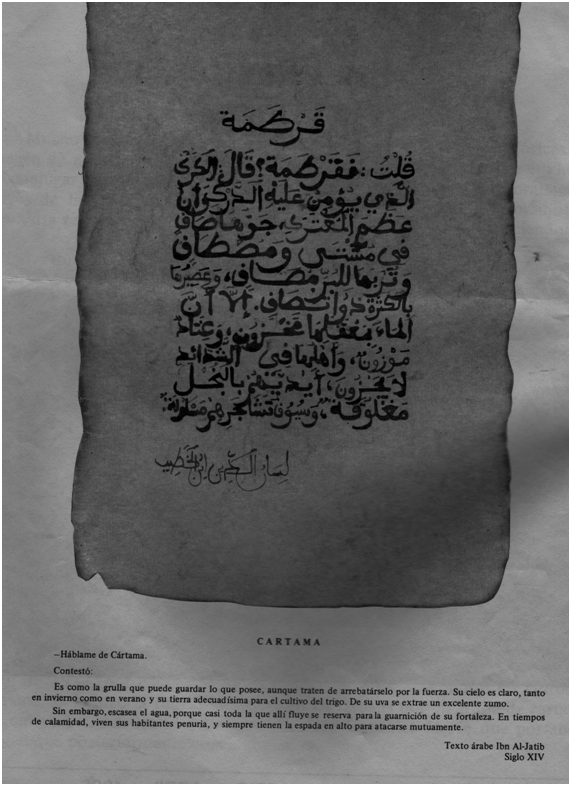 قَرْطَمَة
قُلْتُ : فَقَرْطَمَة؟ قَالَ الكركي
الذي يُؤمن عَلَيْهِ الدركوان
عظم المعترى، جَوّها صَافٍ
في مَشْتى وَمُصْطاف
وتربها للبرّ مصاف، وعصيرها
بالكثرة ذو اتصاف. إلاّ أنّ
الماء بمعقلها مخزون، وعتاد
موزون، وأهلها في الشدائد
لا يجزون، أيديهم بالبخل
مغلولة، وسيوف تشاجرهم مسلولة.
لسان الدّين ابن الخطيب
CARTAMA
–Háblame de Cártama.
Contestó:
Es como la grulla que puede guardar lo que posee, aunque traten de arrebatárselo por la fuerza. Su cielo es claro, tanto
en invierno como en verano y su tierra adecuadísima para el cultivo del trigo. De su uva se extrae un excelente zumo.
Sin embargo, escasea el agua, porque casi toda la que allí fluye se reserva para la guarnición de su fortaleza. En tiempos
de calamidad, viven sus habitantes penuria, y siempre tienen la espada en alto para atacarse mutuamente.
Texto árabe Ibn Al-Jatib
Siglo XIV